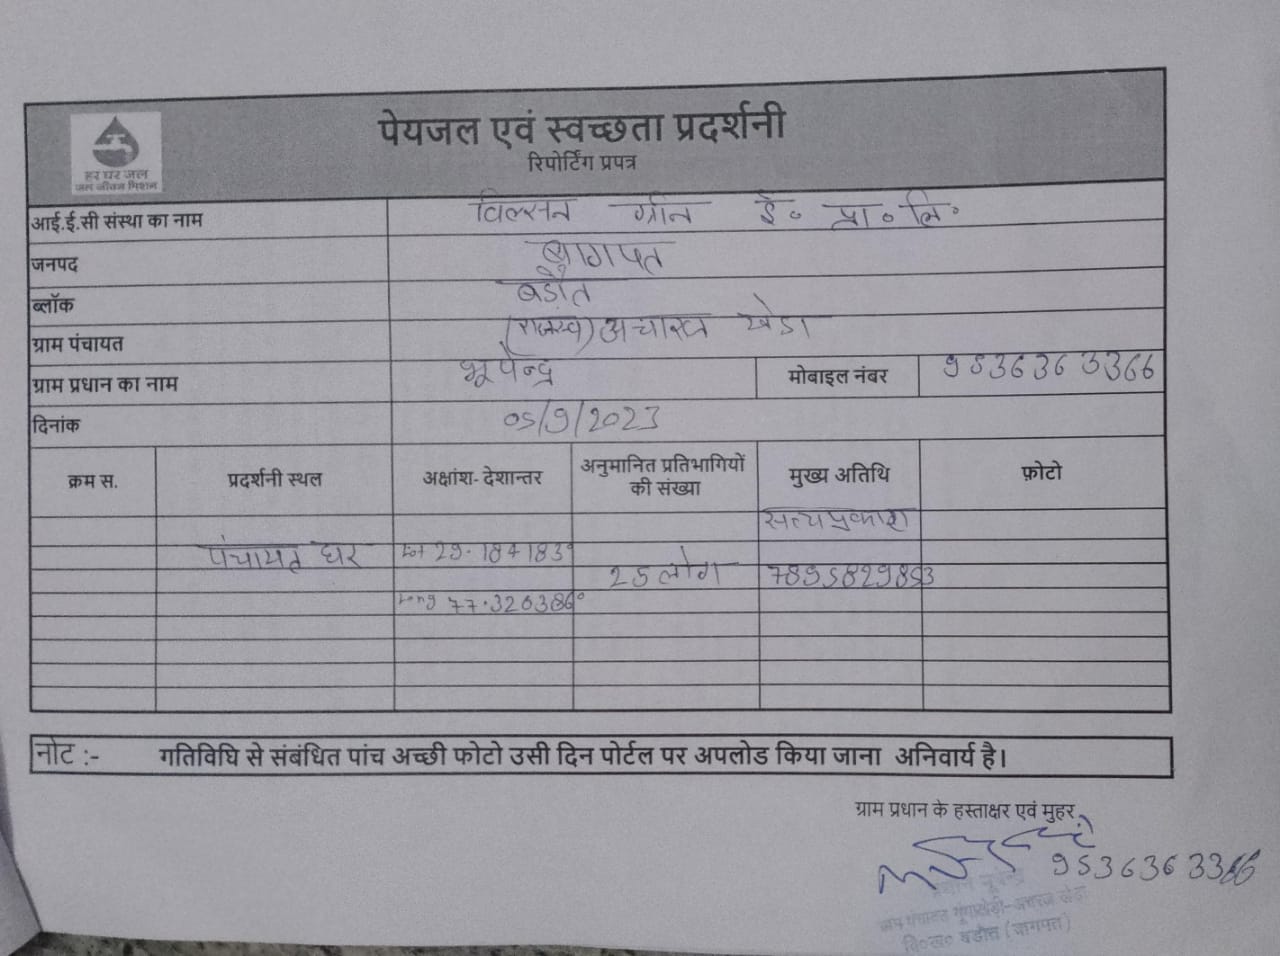 हर घर जल
जल जीवन मिशन
पेयजल एवं स्वच्छता प्रदर्शनी
रिपोर्टिंग प्रपत्र
आई.ई.सी संस्था का नाम विल्सन ग्रीन ई० प्रा० लि०
जनपद बागपत
ब्लॉक बडौत
ग्राम पंचायत (राजस्व) खेडा
ग्राम प्रधान का नाम भूपेन्द्र मोबाइल नंबर 9536363366
दिनांक 05/9/2023
क्रम स. प्रदर्शनी स्थल अक्षांश- देशान्तर अनुमानित प्रतिभागियों की संख्या मुख्य अतिथि फ़ोटो
सत्यप्रकाश
पंचायत घर Lat 29.184183°
25 लोग 7895829853
Long 77.326386°
नोट :- गतिविधि से संबंधित पांच अच्छी फोटो उसी दिन पोर्टल पर अपलोड किया जाना अनिवार्य है।
ग्राम प्रधान के हस्ताक्षर एवं मुहर
9536363366
प्रधान भूपेन्द्र
वि०ख० बडौत (बागपत)